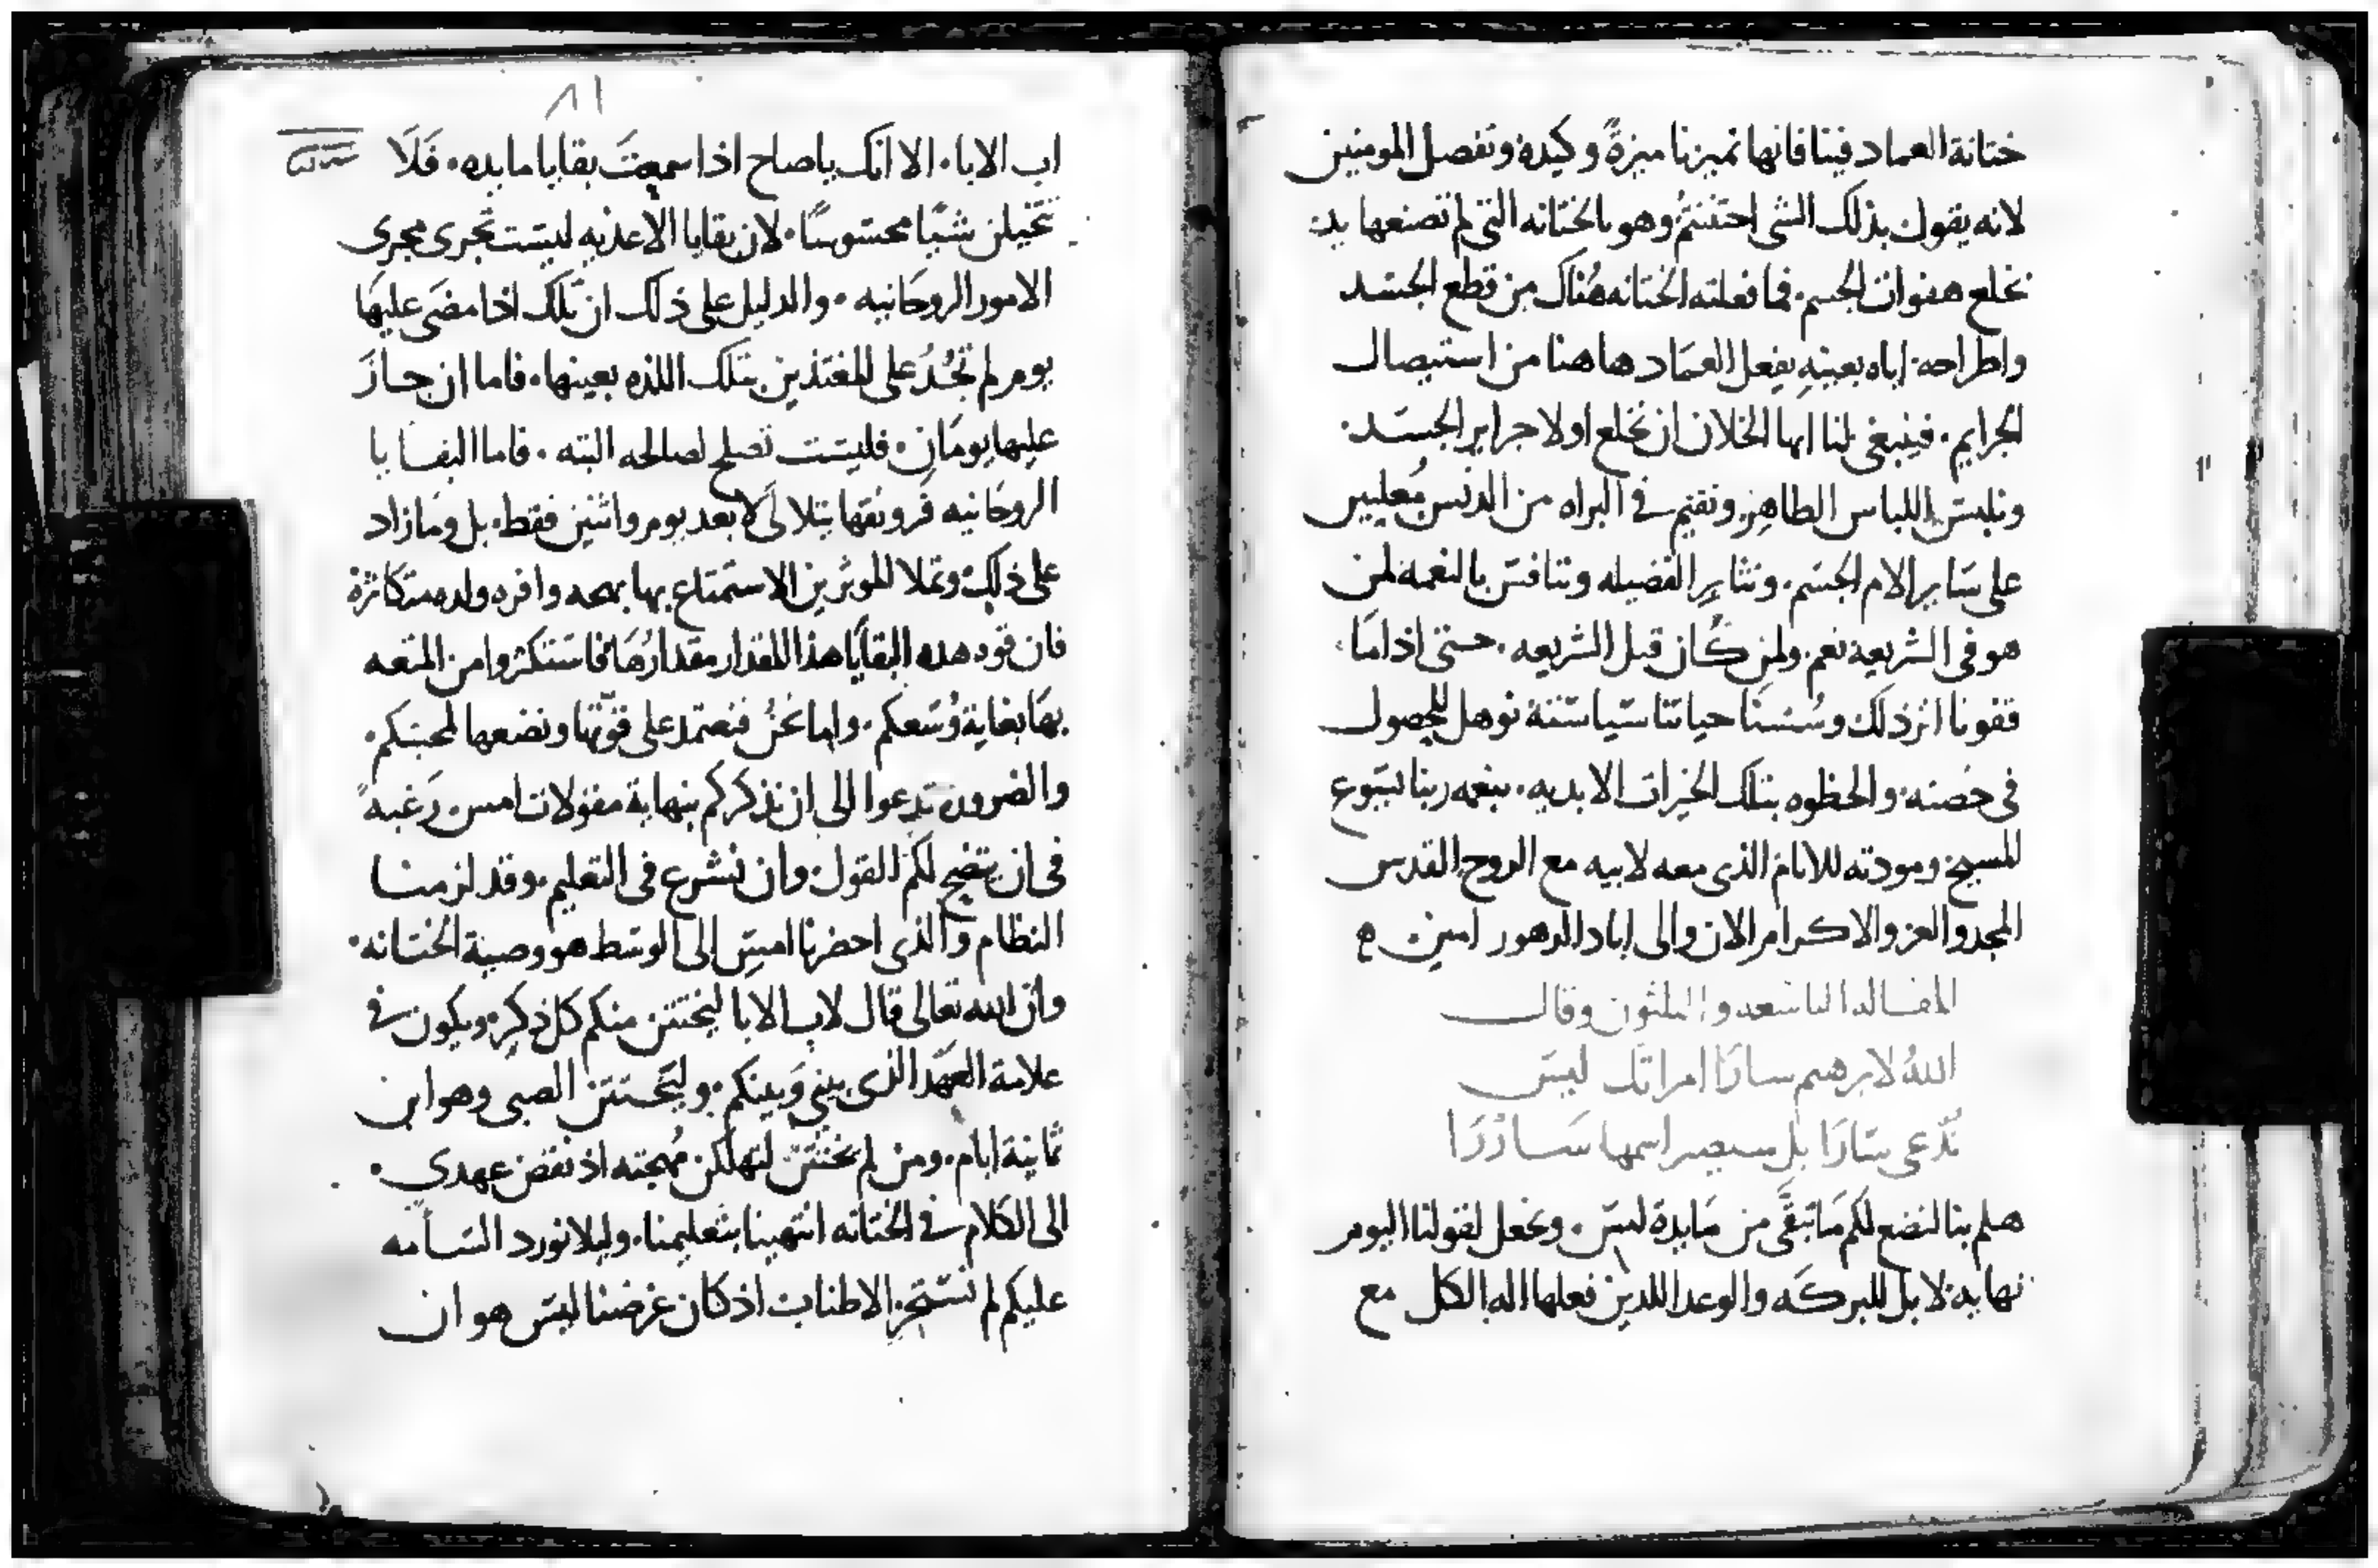 ختانة العماد فينا فانها تميزنا ميزةً وكيده وتفصل المومنين
لانه يقول بذلك الشى اختتنتُم وهو بالختانه التى لم تصنعها يد
بخلع هفوات الجسم. فما فعلته الختانه هُناك من قطع الجسَد
واطراحه. اياه بعينهِ يفعل العمَاد هاهنا من استيصال
الجرايم. فينبغى لنا ايها الخلان ان نخلع اولا جراير الجسَد.
ونلبسَ اللباس الطاهر ونقيم فى البراه من الدنس مُعليين
على سَاير الام الجسَم. ونثابر الفضيله ونتنافسَ بالنعمه لمن
هو فى الشريعه نعم. ولمن كَان قبل الشريعه. حتى اذا مَا
قفونا اثر ذلك وسُسنَا حياتنا سيَاسَته نوهل للحصول
فى حضنه. والحظوه بتلك الخيرات الابديه. بنعمه ربنا يسَوع
المسيح ومودته للانام الذى معه لابيه مع الروح القدس
المجد والعز والاكرام الان والى اباد الدهور امين ه
المقاله التاسعه والثلثون وقال
اللهُ لابرهيم سارَا امراتك ليسَ
تُدعى سَارَا بل سيصير اسمها سَارْرَا
هلم بنا لنضع لكم مَا تبقَّى من مَايدة امسَ. ونجعل لقولنا اليوم
نهايه. لا بل للبركَه والوعد اللذين فعلهما اله الكل مع
٨١
اب الابا. الا انك ياصاح اذا سمعتَ بقايا مايده. فَلَا
تتخيلن شيًا محسَوسًا. لان بقايا الاغذيه ليسَت تجرى مجرى
الامور الروحَانيه. والدليل على ذلك ان تلك اذا مضَى عليهَا
يوم لم تجُدُ على المغتذين بتلك اللذه بعينها. فاما ان جازَ
عليها يومَان. فليسَت تصلح لصالحه البته. فاما البقايا
الروحَانيه فرونقها يتلالَى لا بعد يوم واثنين فقط. بل ومَا زاد
على ذلك. وتملا الموثرين الاستمتاع بها بهجه وافره ولذه متكَاثرة
فان قوه هده البقايَا هذا المقدار مقدارُهَا فاستَكثروا من المتعه
بهَا بغاية وُسَعكم. واما نحنُ فنعتمد على قوّتها ونضعها لمحبتكم.
والضروره تدعوا الى ان نذكركم بنهاية مقولات امس. رَغبه
فى ان يتضح لكم القول. وان نشرع فى التعليم. وقد لزمنا
النظام والذى احضرنا امسِ الى الوسَط هو وصية الختانه.
وان الله تعالى قال لاب الابا ليختتن منكم كل ذكر. ويكون فى
علامة العهَد الذى بينى وَبينكم. وليَختتن الصبى وهو ابن
ثمانية ايام. ومن لم يختتن لتهلكن مُهجته اذ نقض عهدي.
الى الكلام فى الختانه انتهينا بتعليمنا. وليلا نورد السَامه
عليكم لم نسَتَجِز الاطناب اذ كان غرضنا ليسَ هو ان